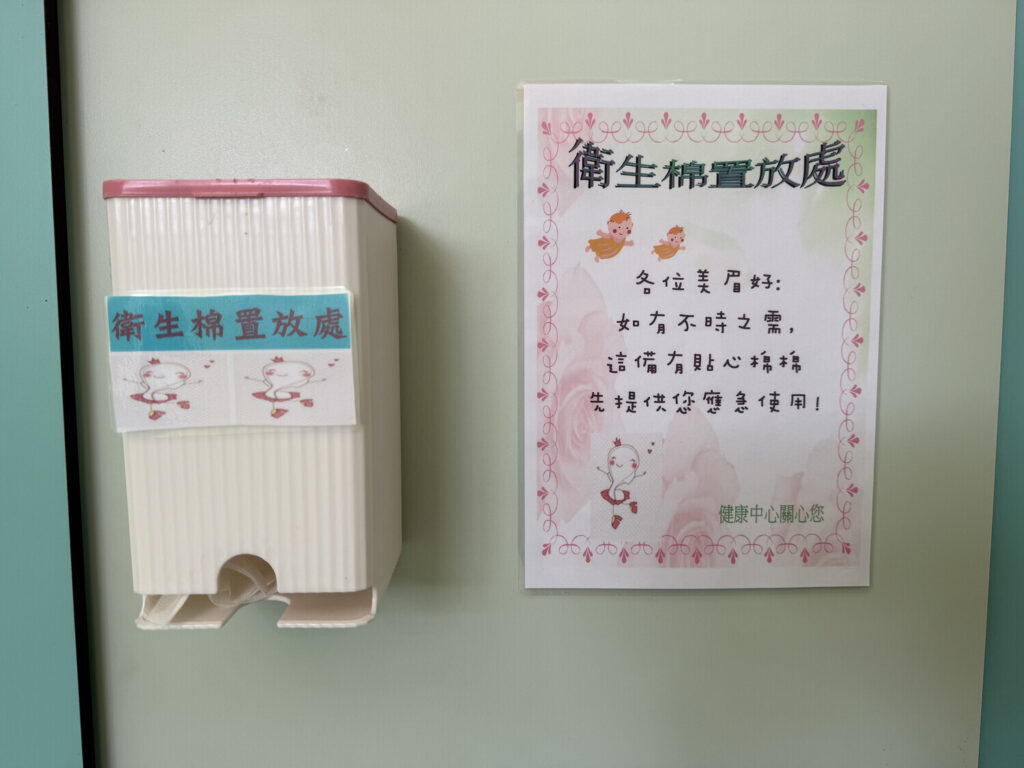 衛生棉置放處
衛生棉置放處
各位美眉好:
如有不時之需,
這備有貼心棉棉
先提供您應急使用!
健康中心關心您